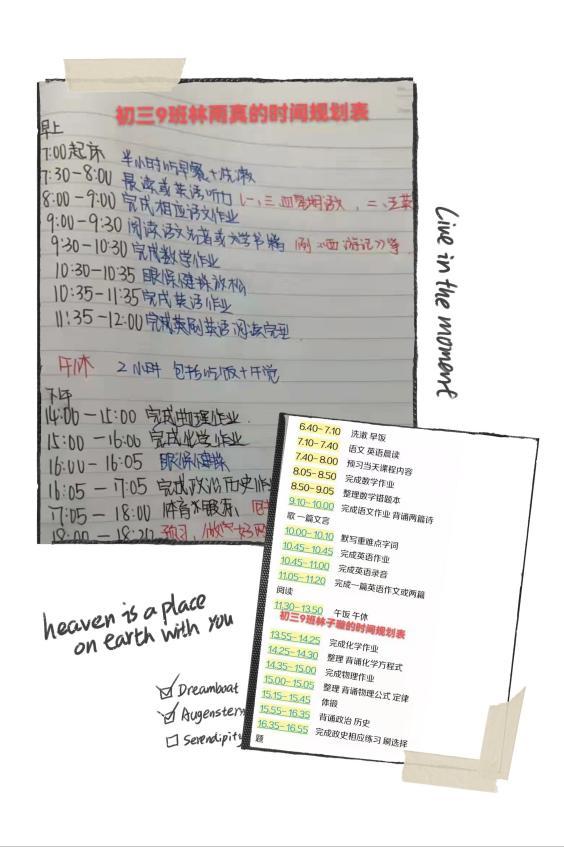 初三9班林雨真的时间规划表
早上
7:00起床 半小时吃早餐+洗漱
7:30-8:00 晨读或英语听力(一、三、四星期语文,二、五英
8:00-9:00 完成相应语文作业
9:00-9:30 阅读语文名著或文学书籍 例《西游记》等
9:30-10:30 完成数学作业
10:30-10:35 眼保健操放松
10:35-11:35 完成英语作业
11:35-12:00 完成英剧英语阅读完型
午休 2小时 包括吃饭+午觉
下午
14:00-15:00 完成物理作业
15:00-16:00 完成化学作业
16:00-16:05 眼保健操
16:05-17:05 完成政治历史作
17:05-18:00 体育
18:00-18:20 预习
Live in the moment
6.40-7.10 洗漱 早饭
7.10-7.40 语文 英语晨读
7.40-8.00 预习当天课程内容
8.05-8.50 完成数学作业
8.50-9.05 整理数学错题本
9.10-10.00 完成语文作业 背诵两篇诗
歌 一篇文言
10.00-10.10 默写重难点字词
10.45-10.45 完成英语作业
10.45-11.00 完成英语录音
11.05-11.20 完成一篇英语作文或两篇
阅读
11.30-13.50 午饭 午休
初三9班林子
的时间规划表
13.55-14.25 完成化学作业
14.25-14.30 整理 背诵化学方程式
14.35-15.00 完成物理作业
15.00-15.05 整理 背诵物理公式 定律
15.15-15.45 体锻
15.55-16.35 背诵政治 历史
16.35-16.55 完成政史相应练习 刷选择
题
heaven is a place
on earth with you
Dreamboat
Augenstern
Serendipity